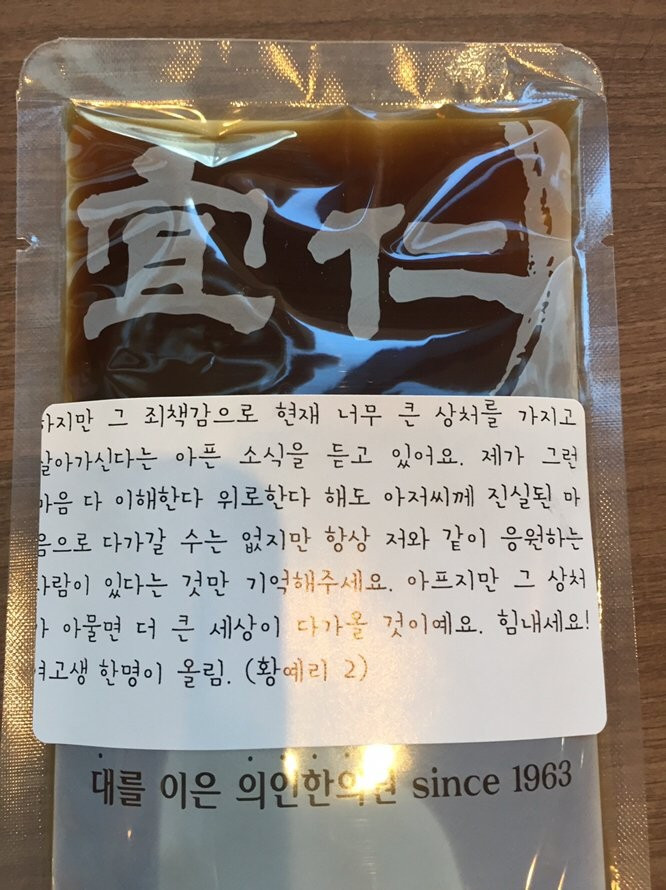 宜仁
하지만 그 죄책감으로 현재 너무 큰 상처를 가지고
살아가신다는 아픈 소식을 듣고 있어요. 제가 그런
마음 다 이해한다 위로한다 해도 아저씨께 진실된 마
음으로 다가갈 수는 없지만 항상 저와 같이 응원하는
사람이 있다는 것만 기억해주세요. 아프지만 그 상처
가 아물면 더 큰 세상이 다가올 것이예요. 힘내세요!
여고생 한명이 올림. (황예리 2)
대를 이은 의인한의원 since 1963